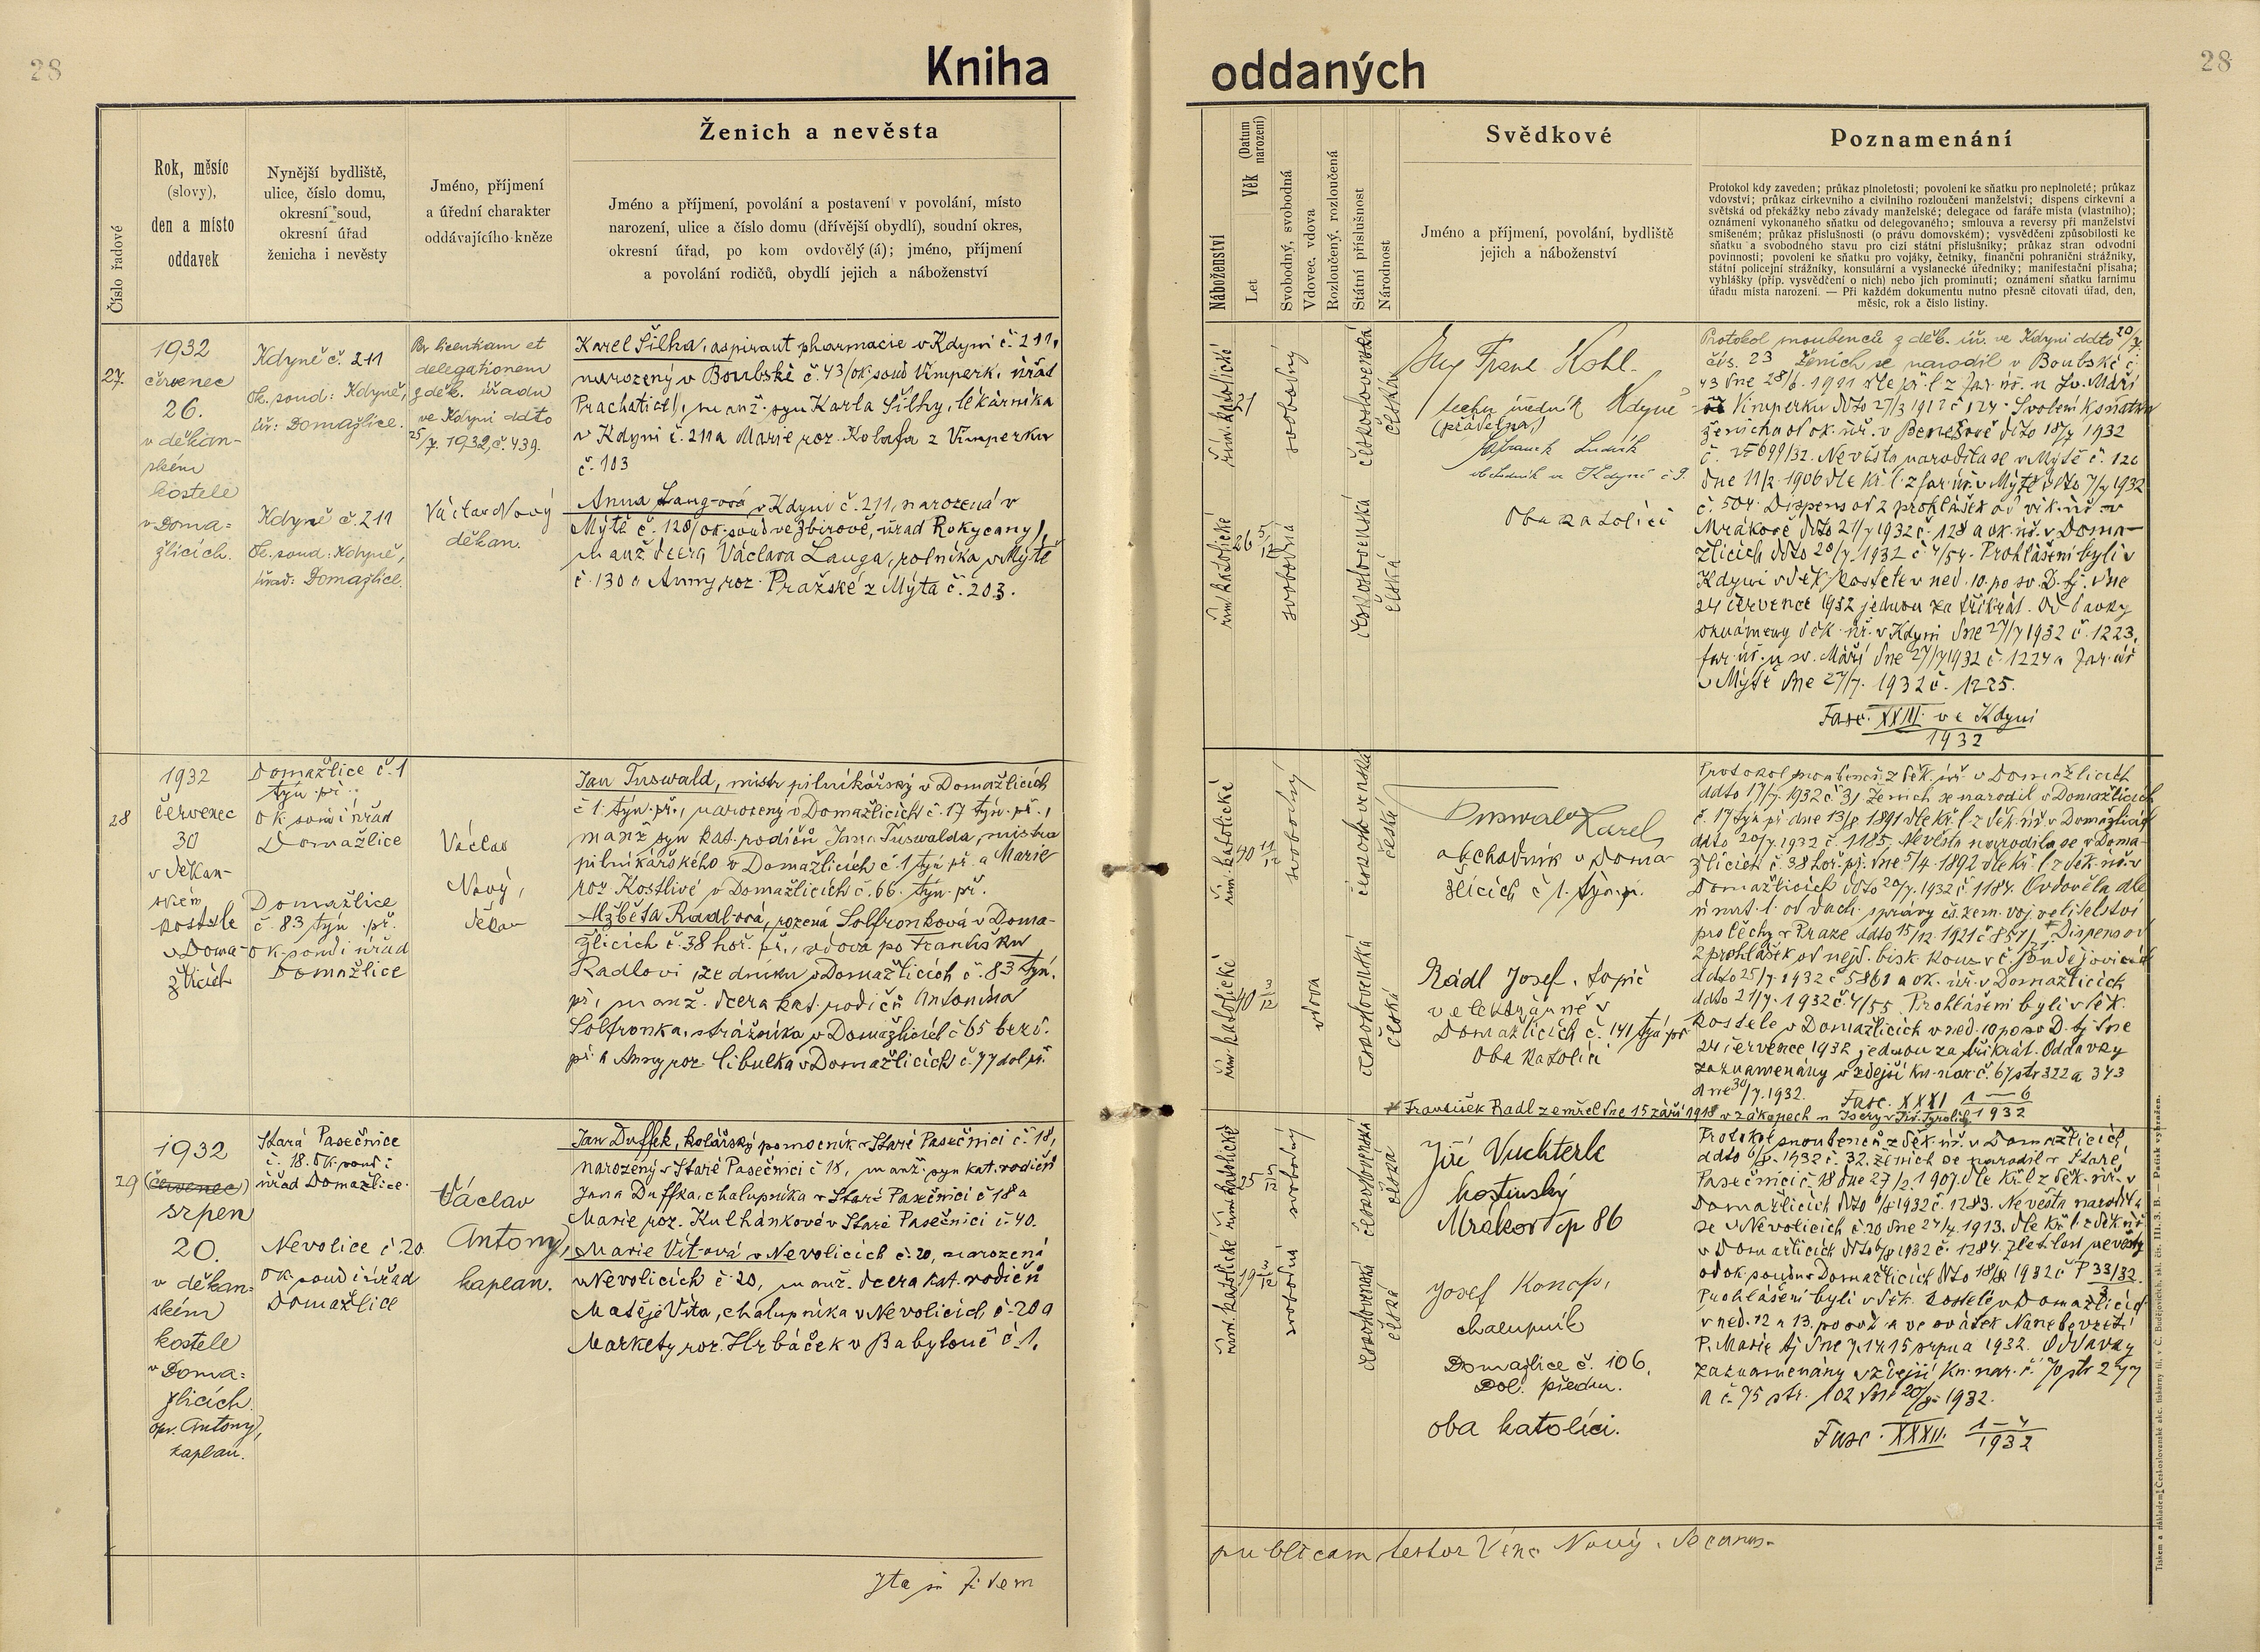 28
Kniha
oddaných
28
Číslo řadové
Rok, měsíc
(slovy),
den a místo
oddavek
Nynější bydliště,
ulice, číslo domu,
okresní soud,
okresní úřad
ženicha i nevěsty
Jméno, příjmení
a úřední charakter
oddávajícího kněze
Ženich a nevěsta
Jméno a příjmení, povolání a postavení v povolání, místo
narození, ulice a číslo domu (dřívější obydlí), soudní okres,
okresní úřad, po kom ovdovělý (á); jméno, příjmení
a povolání rodičů, obydlí jejich a náboženství
Náboženství
Věk (Datum narození)
Let
Svobodný, svobodná
Vdovec, vdova
Rozloučený, rozloučená
Státní příslušnost
Národnost
Svědkové
Jméno a příjmení, povolání, bydliště
jejich a náboženství
Poznamenání
Protokol kdy zaveden; průkaz plnoletosti; povolení ke sňatku pro neplnoleté; průkaz
vdovství; průkaz církevního a civilního rozloučení manželství; dispens církevní a
světská od překážky nebo závady manželské; delegace od faráře místa (vlastního);
oznámení vykonaného sňatku od delegovaného; smlouva a reversy při manželství
smíšeném; průkaz příslušnosti (o právu domovském); vysvědčení způsobilosti ke
sňatku a svobodného stavu pro cizí státní příslušníky; průkaz stran odvodní
povinnosti; povolení ke sňatku pro vojáky, četníky, finanční pohraniční strážníky,
státní policejní strážníky, konsulární a vyslanecké úředníky; manifestační přísaha;
vyhlášky (příp. vysvědčení o nich) nebo jich prominutí; oznámení sňatku farnímu
úřadu místa narození. — Při každém dokumentu nutno přesně citovati úřad, den,
měsíc, rok a číslo listiny.
27.
1932
červenec
26.
v děkan-
ském
kostele
v Doma=
žlicích.
Kdyně č. 211
Ok. soud: Kdyně,
úř: Domažlice.
Kdyně č. 211
Ok. soud: Kdyně,
úřad: Domažlice.
Per licentiam et
delegationem
z děk. úřadu
ve Kdyni ddto
25/7. 1932, č. 439.
Václav Nový
děkan.
Karel Šilha, aspirant pharmacie v Kdyni č. 211,
narozený v Boubské č. 43 (ok. soud Vimperk, úřad
Prachatice), manž. syn Karla Šilhy, lékárníka
v Kdyni č. 211 a Marie roz. Kolafa z Vimperku
č. 103
Anna Lang-ová v Kdyni č. 211, narozená v
Mýtě č. 120 (ok. soud ve Zbirově, úřad Rokycany),
manž. dcera Václava Langa, rolníka v Mýtě
č. 130 a Anny roz. Pražské z Mýta č. 203.
řím. katolické
21
svobodný
československá
česká
řím. katolické
26 5/12
svobodná
československá
česká
Ing Frant. Kohl.
techn. úředník Kdyně
(prádelna)
Ludvík
obchodník ve Kdyni č 9.
Oba katolíci
Protokol snoubenců z děk. úř. ve Kdyni ddto 20/7.
čís. 23 Ženich se narodil v Boubské č.
43 dne 28/6. 1911 dle kř. l. z far. úř. u Sv. Máří
Vimperku ddto 27/3 1912 č 124. Svolení k sňatku
ženicha od ok. úř. v Benešově ddto 18/7 1932
Nevěsta narodila se v Mýtě č. 120
dne 11/2. 1906 dle kř. l. z far. úř. v Mýtě ddto 7/7 1932
č. 504. Dispens od 2 prohlášek od vik. úř. v
Mrákově ddto 21/7 1932 č. 128 a ok. úř. v Doma-
žlicích ddto 20/7. 1932 č 4/54. Prohlášeni byli v
Kdyni v děk. kostele v ned. 10. po sv. D. tj. dne
24 července 1932 jednou za třikrát. Oddavky
oznámeny děk. úř. v Kdyni dne 27/7 1932 č. 1223,
far. úř. u sv. Máří dne 27/7 1932 č. 1224 a far. úř
v Mýtě dne 27/7. 1932 č. 1225.
Fasc. XXIII. ve Kdyni
1932
28
1932
červenec
30
v děkan-
ském
kostele
v Doma-
žlicích
Domažlice č. 1
týn. př.
ok. soud i úřad
Domažlice
Domažlice
č. 83 týn. př.
ok. soud i úřad
Domažlice
Václav
Nový,
děkan
Jan Tuswald, mistr pilníkářský v Domažlicích
č 1. týn. př., narozený v Domažlicích č. 17 týn. př.,
manž. syn kat. rodičů Jana Tuswalda, mistra
pilníkářského v Domažlicích č. 1 týn. př. a Marie
roz. Kostlivé v Domažlicích č. 66. týn. př.
Alžběta Radl-ová, rozená Solfronková v Doma-
žlicích č. 38 hoř. př., vdova po Františku
Radlovi, zedníku v Domažlicích č. 83 týn.
př., manž. dcera kat. rodičů Antonína
Solfronka, strážníka v Domažlicích č 65 bezd.
př. a Anny roz. Cibulka v Domažlicích č. 77 dol. př.
řím. katolické
40 11/12
svobodný
československá
česká
řím. katolické
40 3/12
vdova
československá
česká
Tuswald Karel
obchodník v Doma-
žlicích č 1. týn. p.
Rádl Josef, topič
v elektrárně v
Domažlicích č. 141 týn. př.
Oba katolíci
Protokol snoubenců z děk. úř. v Domažlicích
ddto 17/7. 1932 č 31 Ženich se narodil v Domažlicích
č. 17 týn. př. dne 13/8 1891 dle kř. l. z děk. úř. v Domažlicích
ddto 20/7. 1932 č. 1185, Nevěsta narodila se v Doma-
žlicích č. 38 hoř. př. dne 5/4. 1892 dle kř. l. z děk. úř. v
Domažlicích ddto 20/7. 1932 č 1184. Ovdověla dle
úmrt. l. od duch. správy čs. zem. voj. velitelství
pro Čechy v Praze ddto 15/12. 1921 č 857/. Dispens od
2 prohlášek od nejd. bisk. kons. v Č. Budějovicích
ddto 25/7. 1932 č 5861 a ok. úř. v Domažlicích
ddto 21/7. 1932 č. 4/55. Prohlášeni byli v děk.
kostele v Domažlicích v ned. 10 po sv. D. tj. dne
24 července 1932 jednou za třikrát. Oddavky
zaznamenány v zdejší kn. nar. č. 67 str 322 a 343
dne 30/7. 1932. Fasc. XXXI 1—6
1932
František Radl zemřel dne 15 září 1918 v zákopech u Isery v Již. Tyrolích
29
1932
(červenec)
srpen
20.
v děkan=
ském
kostele
v Doma=
žlicích.
opr. Antony,
kaplan.
Stará Pasečnice
č. 18. Ok. soud i
úřad Domažlice.
Nevolice č. 20
Ok. soud i úřad
Domažlice
Václav
Antony,
kaplan.
Jan Duffek, kolářský pomocník v Staré Pasečnici č. 18,
narozený v Staré Pasečnici č 18, manž. syn kat. rodičů
Jana Duffka, chalupníka v Staré Pasečnici č 18 a
Marie roz. Kulhánkové v Staré Pasečnici č. 40.
Marie Vít-ová v Nevolicích č. 20, narozená
v Nevolicích č. 20, manž. dcera kat. rodičů
Matěje Víta, chalupníka v Nevolicích č. 20 a
Markety roz. Hrbáček v Babyloně č. 1.
řím. katolické
25 5/12
svobodný
československá
česká
řím. katolické
19
svobodná
československá
česká
Jiří Vuchterle
hostinský
Mrákov čp 86
Josef Konop,
chalupník
Domažlice č. 106,
Dol. předm.
oba katolíci.
Protokol snoubenců z děk. úř. v Domažlicích,
ddto 6/8. 1932 č. 32. Ženich se narodil v Staré
Pasečnici č. 18 dne 27/2. 1907. dle kř. l. z děk. úř. v
Domažlicích ddto 6/8 1932 č. 1283. Nevěsta narodila
se v Nevolicích č. 20 dne 24/4. 1913. dle kř. l. z děk. úř
v Domažlicích ddto 6/8 1932 č. 1284. Zletilost nevěsty
od ok. soudu v Domažlicích ddto 18/8 1932 č P 33/32.
Prohlášeni byli v děk. kostele v Domažlicích
v ned. 12 a 13. po sv. D. a ve svátek Nanebevzetí
P. Marie tj. dne 7. 14. 15 srpna 1932. Oddavky
zaznamenány v zdejší kn. nar. č. 70 str 277
a č. 75 str. 102 dne 20/8. 1932.
Fasc. XXXII. 1—4
1932
Ita in fidem
publicam testor Venc. Nový, decanus.
Tiskem a nákladem Českoslovanské akc. tiskárny fil. v Č. Budějovicích, skl. čís. III. 3. B. — Padisk vyhražen.